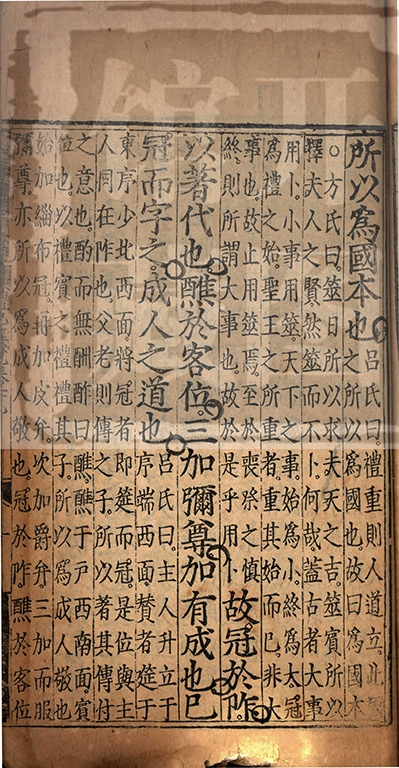 所以爲國本也呂氏曰禮重則人道立此國
之所以爲國也故曰爲國本
○方氏曰筮日所以求夫天之吉筮賓所以
擇夫人之賢然筮而不卜何哉蓋古者大事
用卜小事用筮天下之事始爲小終爲大冠
爲禮之始聖王之所重者重其始而已非大
事也故止用筮焉至於喪祭之愼
終則所謂大事也故於是乎用卜故冠於阼
以著代也醮於客位三加彌尊加有成也已
冠而字之成人之道也呂氏曰主人升立于
序端西面贊者筵于
東序少北西面將冠者即筵而冠是位與主
人同在阼也父老則傳之子所以著其傳付
之意也酌而無酬酢曰醮醮于戶西南面賓
位也以禮賓之禮禮其子所以爲成人敬也
始加緇布冠再加皮弁次加爵弁三加而服
彌尊亦所以爲成人敬也冠於阼醮於客位